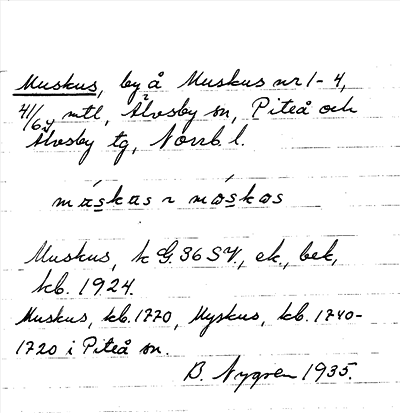 Muskus, by å Muskus nr 1-4,
41/64 mtl, Älvsby sn, Piteå och
Älvsby tg, Norrb. l.
Muskus, k G. 36 SV., ek., bek,
kb. 1924.
Muskus, kb. 1770, Myskus, kb. 1740-
1720 i Piteå sn.
B. Nygren 1935.